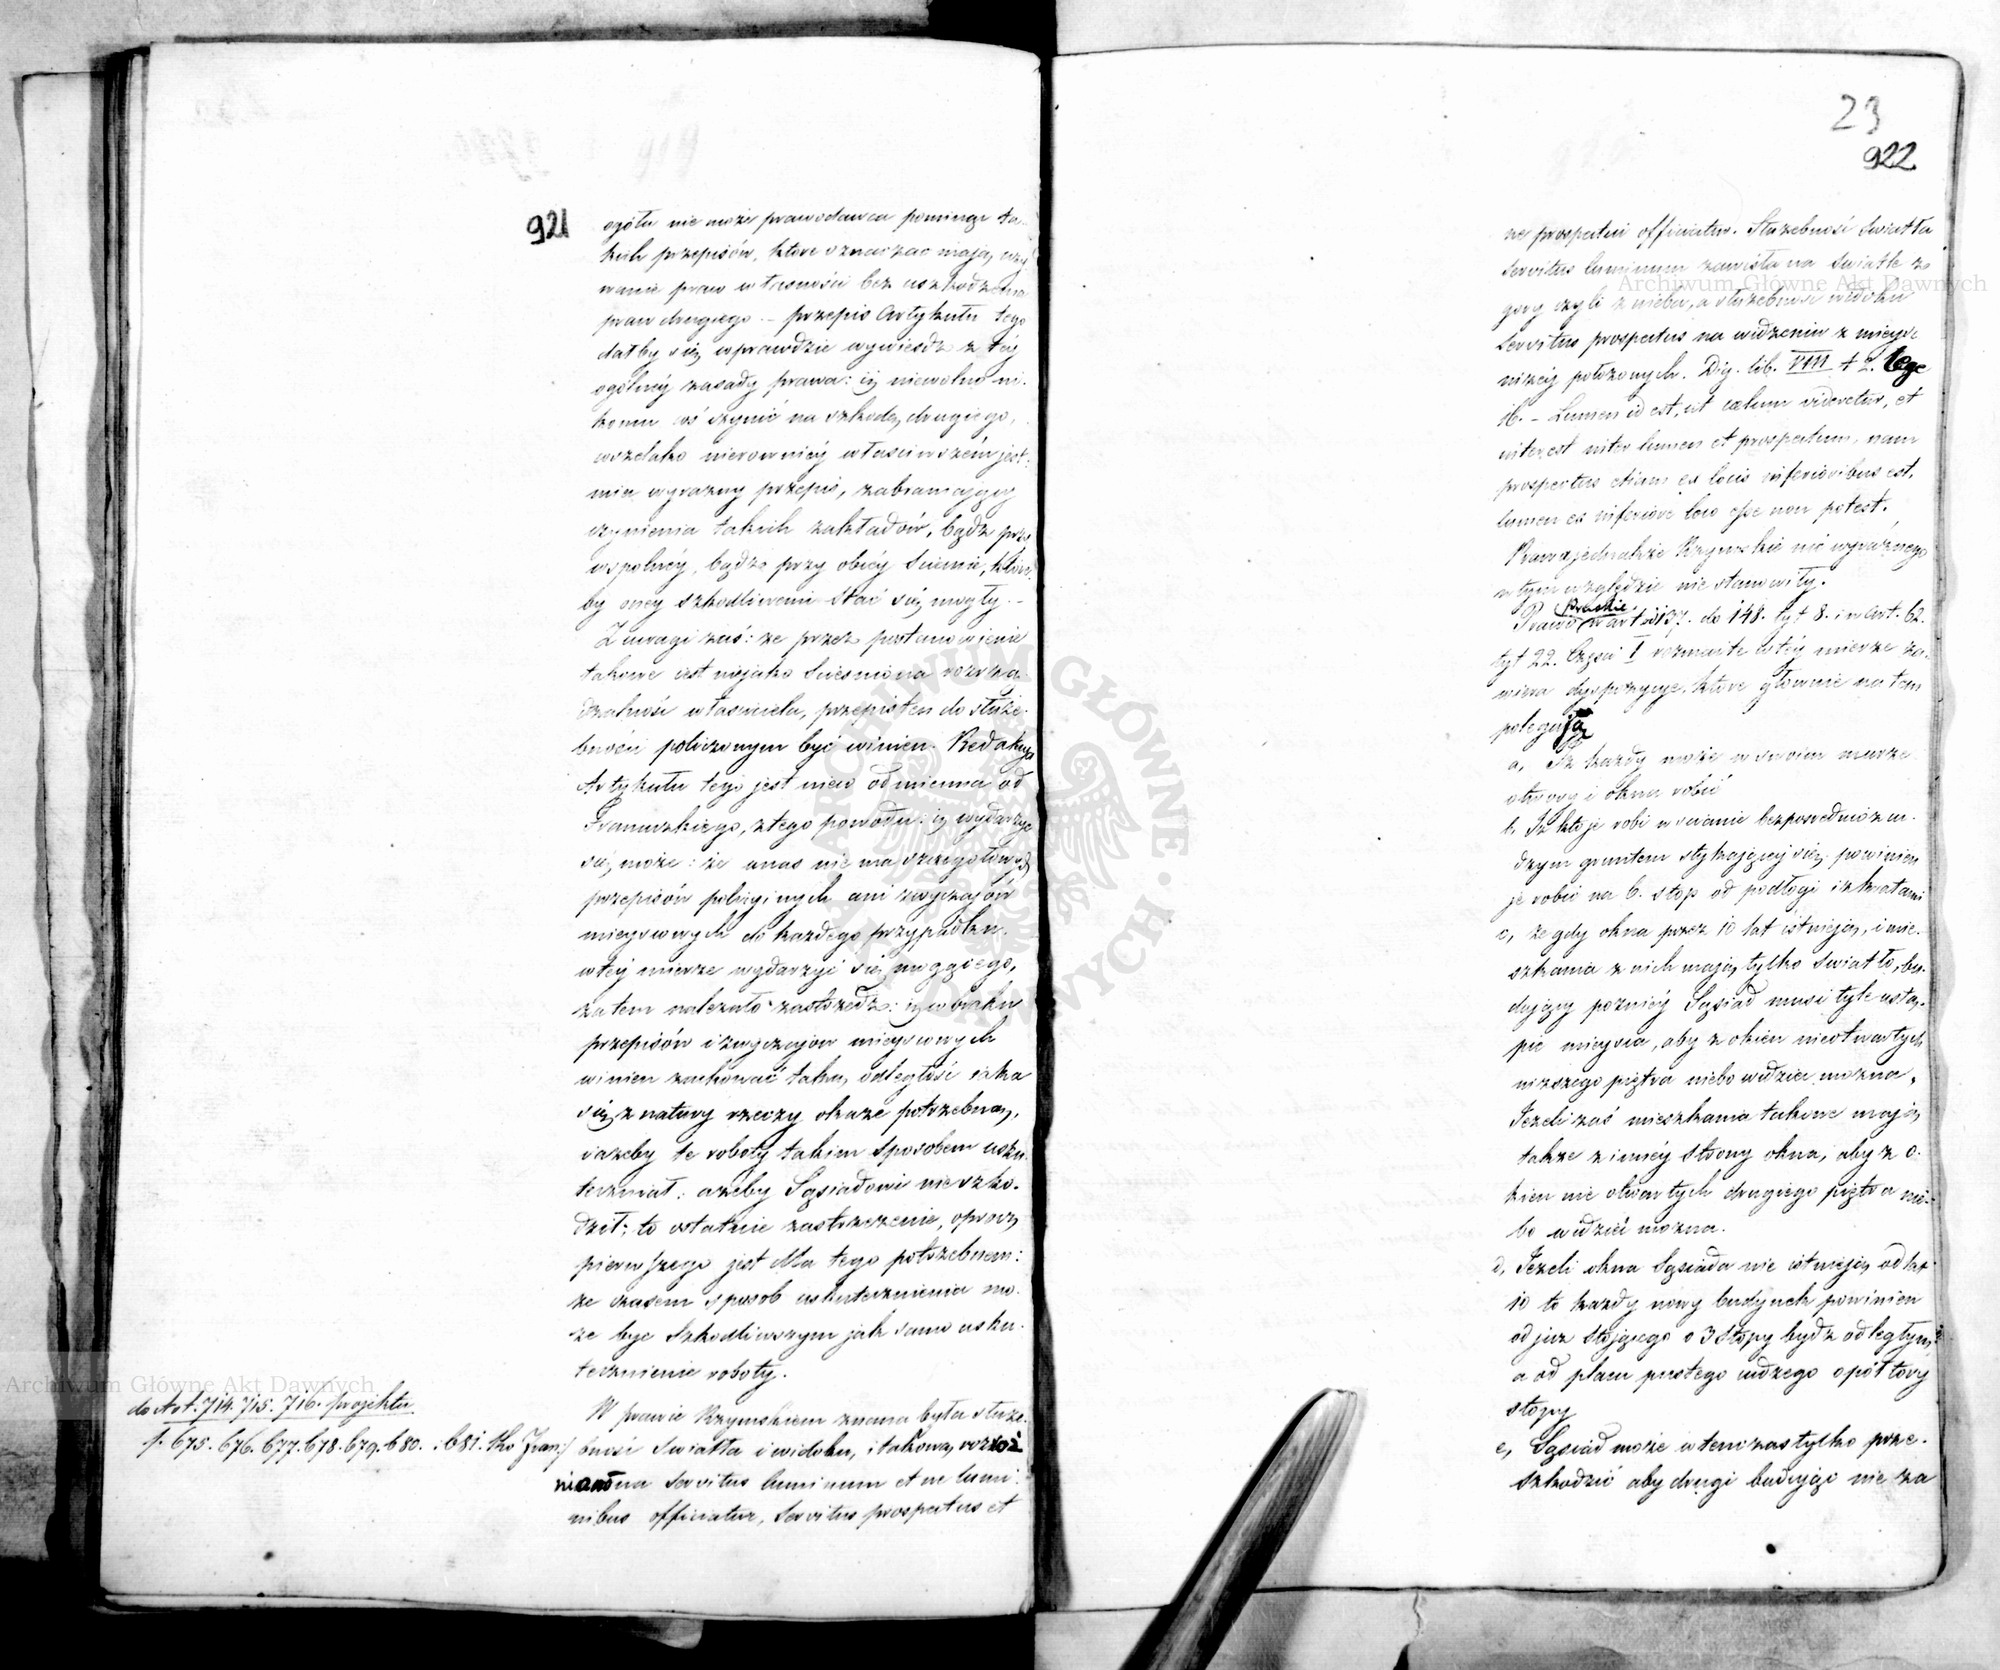 921
ogółu nie może prawodawca pominąć ta-
kich przepisów, które oznaczać mają uży
wanie praw własności bez uszkodzenia
praw drugiego – przepis Artykułu tego
dałby się wprawdzie wywieśdź z téy
ogólnéy zasady prawa: iż niewolno ni-
komu coś czynić na szkodę drugiego,
wszelako nierównéy właściwszém jest
mieć wyraźny przepis, zabraniający
czynienia takich zakładów, bądź przy
wspólnéy, bądź przy obcéy ścianie, które
by oney szkodliwemi stać się mogły. –
Z uwagi zaś: że przez postanowienie
takowe jest niejako ścieśniona rozrzą-
dzalność właściciela, przepis ten do służe-
bności policzonym być winien. Redakcya
Artykułu tego jest nieco odmienna od
Francuzkiego, z tego powodu: iż wydarzyć
się może: że u nas nie ma szczegółowych
przepisów policyinych ani zwyczajów
mieyscowych do każdego przypadku
w téy mierze wydarzyć się mogącego,
zatem należało zastrzedz: iż w braku
przepisów i zwyczajów mieyscowych
winien zachować taką odległość jaka
się z natury rzeczy okaże potrzebną,
i ażeby te roboty takim sposobem usku-
teczniał: ażeby Sąsiadowi nie szko-
dził; to ostatnie zastrzeżenie, oprócz
pierwszego jest dla tego potrzebnem:
że czasem sposób uskutecznienia mo-
że być szkodliwszym jak samo usku-
tecznienie roboty.
do Art. 714. 715. 716. projektu
/: 675. 676. 677. 678. 679. 680. i 681. Kho Fran:/
W prawie Rzymskiem znana była służe-
bność światła i widoku, i takową rozróż
niano na servitus luminum et ne lumi-
nibus officiatur, servitus prospectus et
23
922
ne prospectui officiatur. Służebność światła
servitus luminum zawisła na świetle z
góry czyli z nieba, a służebność widoku
servitus prospectus na widzeniu z mieysc
niżéy położonych. Dig. lib. VIII t 2. lege
16. – Lumen id est, ut cœlum videretur, et
interest inter lumen et prospectum, nam
prospectus etiam ex locis inferioribus est,
lumen ex inferiore loco esse non potest.
Prawa jednakże Rzymskie nic wyraźnego
w tym względzie nie stanowiły.
Prawo Pruskie w art. 137. do 148. tyt 8. i w art. 62.
tyt 22. Części I rozmaite w téy mierze za-
wiera dyspozycye, które głównie na tem
polegają
a, Iż każdy może w swoim murze
otwory i okna robić
b, Iż kto je robi w ścianie bezpośrednio z cu-
dzym gruntem stykającéj się, powinien
je robić na 6. stóp od podłogi i z kratami
c, że gdy okna przez 10 lat istnieją, i mie-
szkania z nich mają tylko światło, bu-
dujący późniéy Sąsiad musi tyle ustą-
pić mieysca, aby z okien nieotwartych
niższego piętra niebo widzieć można,
Jeżeli zaś mieszkania takowe mają
także z innéy strony okna, aby z o-
kien nie otwartych drugiego piętra nie-
bo widzieć można.
d, Jeżeli okna Sąsiada nie istnieją od lat
10 to każdy nowy budynek powinien
od już stojącego o 3 stopy bydź odległym,
a od placu pustego cudzego o półtory
stopy
e, Sąsiad może wtenczas tylko prze-
szkodzić aby drugi budując nie za